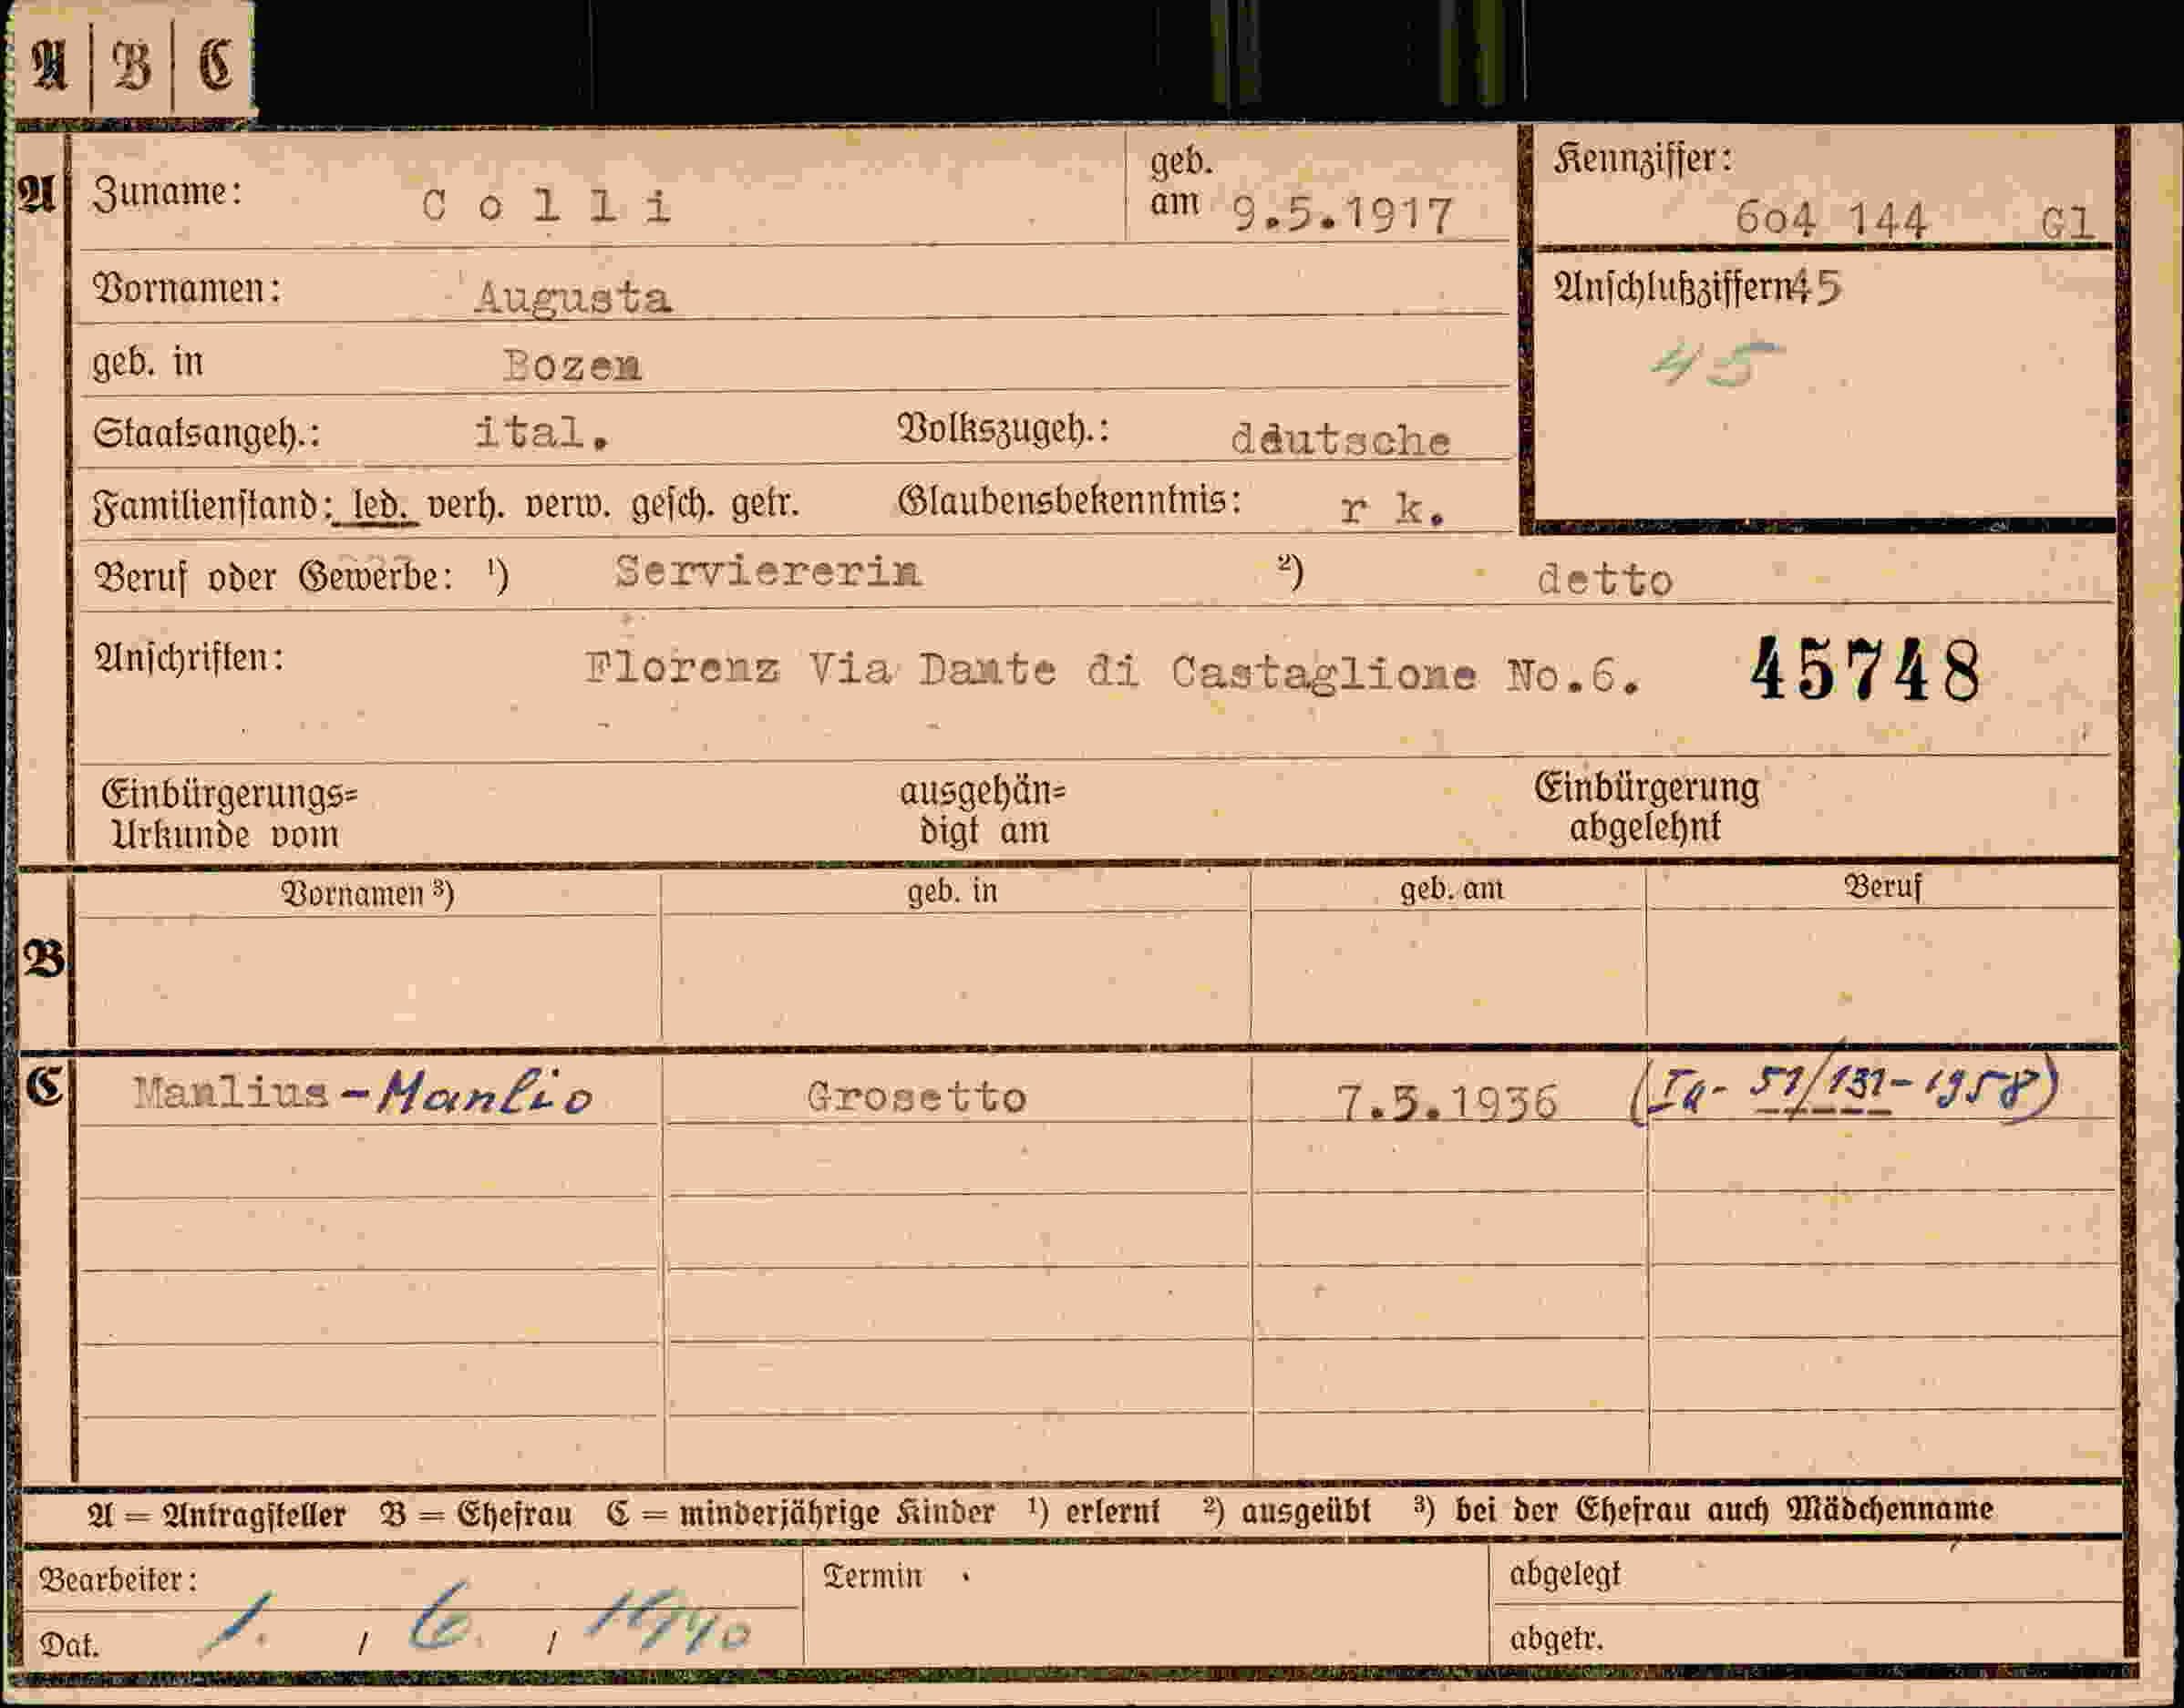 A | B | C
A
Zuname: Colli geb. am 9.5.1917
Kennziffer: 6o4 144 Gl
Vornamen: Augusta
Anschlußziffern45
45
geb. in Bozen
Staatsangeh.: ital. Volkszugeh.: deutsche
Familienstand: led. verh. verw. gesch. getr. Glaubensbekenntnis: r k.
Beruf oder Gewerbe: ¹) Serviererin ²) detto
Anschriften: Florenz Via Dante di Castaglione No.6. 45748
Einbürgerungs= ausgehän= Einbürgerung
Urkunde vom digt am abgelehnt
B
Vornamen ³) geb. in geb. am Beruf
C
Manlius - Manlio Grosetto 7.3.1936 (Ia- 51/131-1958)
A = Antragsteller B = Ehefrau C = minderjährige Kinder ¹) erlernt ²) ausgeübt ³) bei der Ehefrau auch Mädchenname
Bearbeiter: Termin abgelegt
Dat. 1. / 6. / 1940 abgetr.